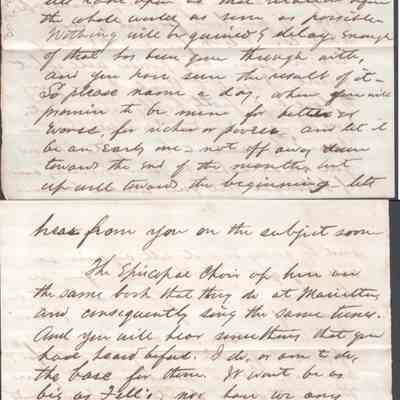 the whole world as soon as possible
Nothing will be gained by delay. Enough
of that has been gone through with,
and you have seen the result of it—
So please name a day, when you will
promise to be mine for better or
worse, for richer or poorer and let it
be an early one— not off away down
toward the end of the month, but
up well toward the beginning. let
hear from you on the subject soon
The Episcopal Choir up here use
the same book that they do at Marietta,
and consequently sing the same tunes.
And you will hear something that you
have heard before. I do, or am to do,
the base for them. It wont be as
big as
nor have we any